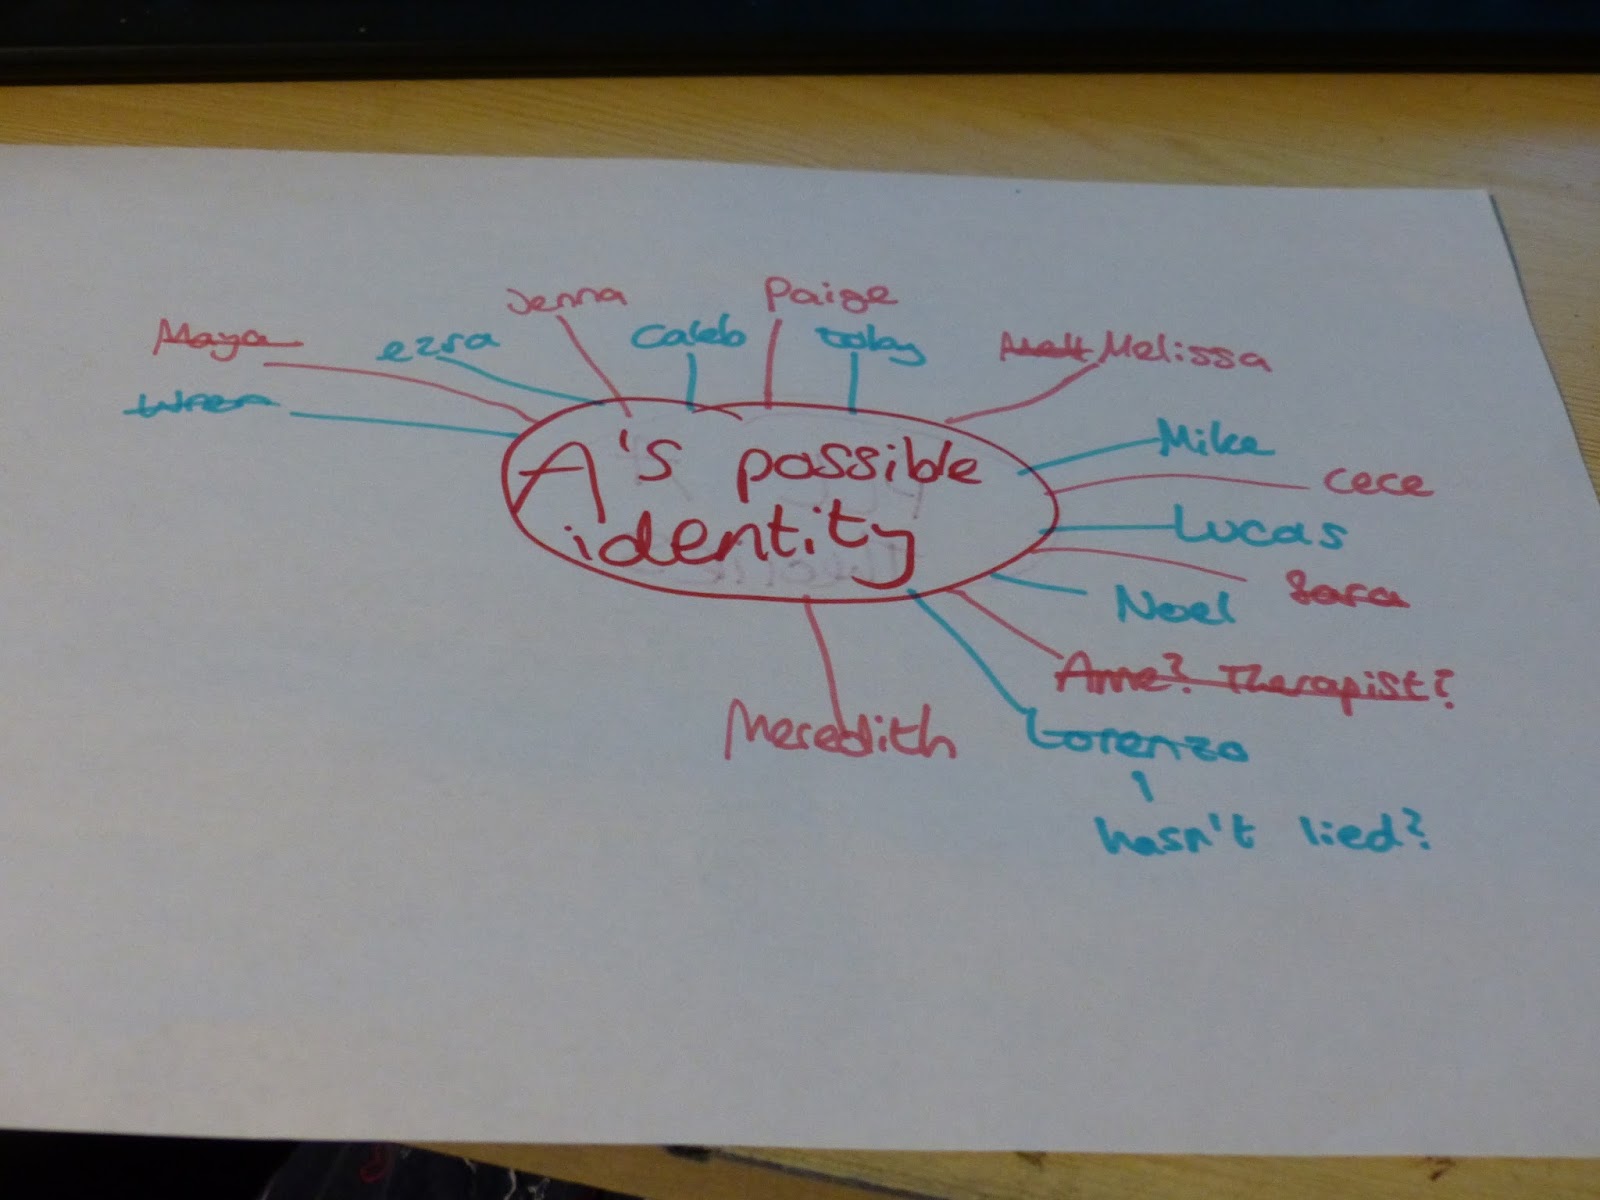 A's possible
identity
Maya
Wren
ezra
Jenna
Caleb
Paige
toby
Melissa
Mike
cece
Lucas
Sara
Noel
Anne? Therapist?
Lorenzo
hasn't lied?
Meredith